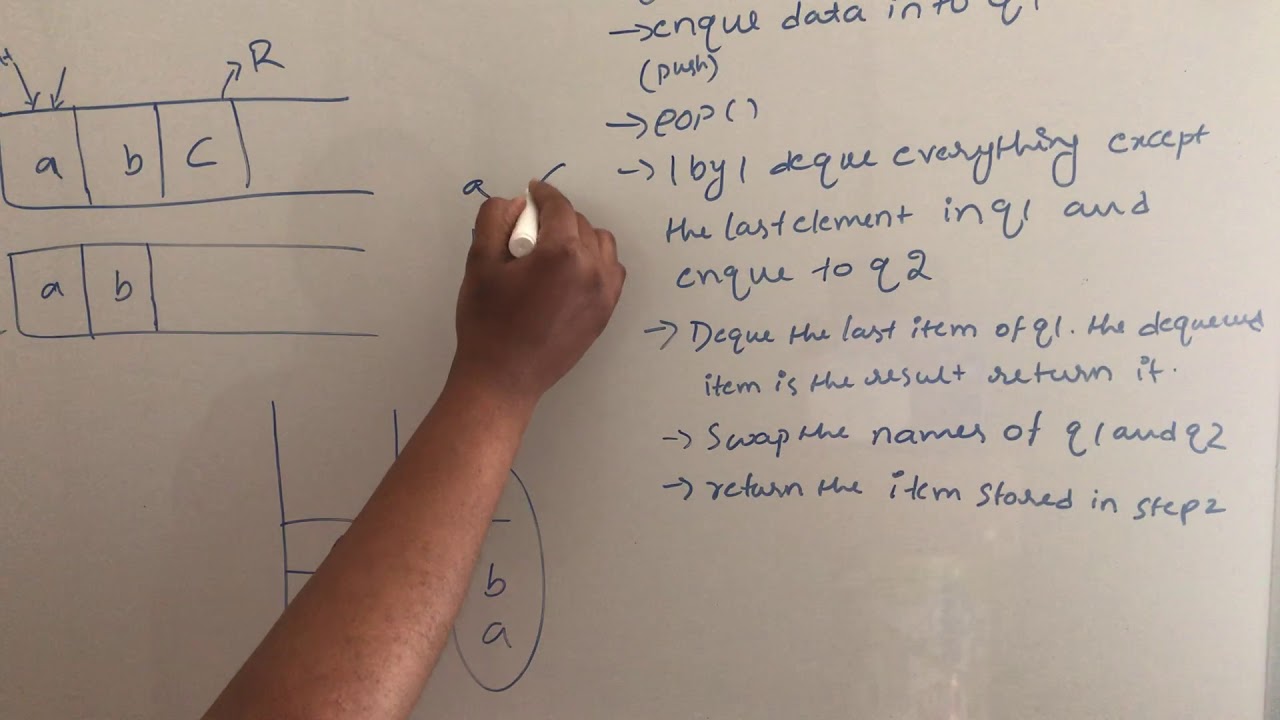 R
a b c
a b
a
b
a
→ enque data into q1
(push)
→ pop()
→ 1 by 1 deque everything except
the last element in q1 and
enque to q2
→ Deque the last item of q1. the dequeued
item is the result return it.
→ Swap the names of q1 and q2
→ return the item stored in step2